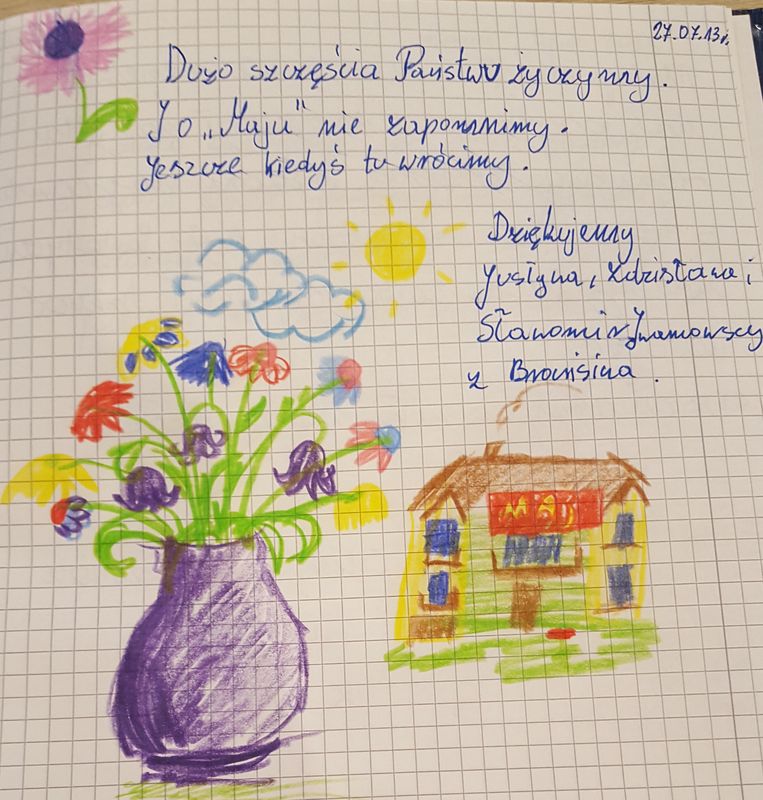 27.07.13r.
Dużo szczęścia Państwu życzymy.
I o „Maju" nie zapomnimy.
Jeszcze kiedyś tu wrócimy.
Dziękujemy
Justyna, Zdzisława i
Sławomir Iwanowscy
z
MAJ